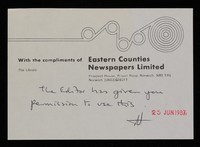 With the compliments of
Eastern Counties
Newspapers Limited
The Library
Prospect House, Rouen Road, Norwich, NR1 1RE
The Editor has given you
permission to use this
JUN 198